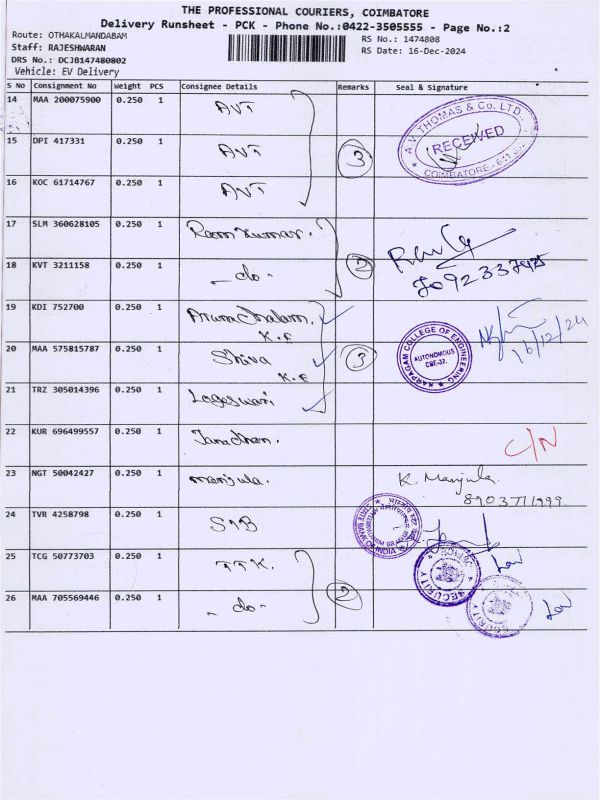 THE PROFESSIONAL COURIERS, COIMBATORE
Delivery Runsheet - PCK - Phone No.:0422-3505555 - Page No.:2
Route: OTHAKALMANDABAM
RS No.: 1474808
Staff: RAJESHWARAN
RS Date: 16-Dec-2024
DRS No.: DCJB147480802
Vehicle: EV Delivery
S No Consignment No Weight PCS Consignee Details Remarks Seal & Signature
14 MAA 200075900 0.250 1 AVT
15 DPI 417331 0.250 1 AVT 3
16 KOC 61714767 0.250 1 AVT
A.V. THOMAS & Co. LTD.
RECEIVED
COIMBATORE
17 SLM 360628105 0.250 1 Ramkumar.
18 KVT 3211158 0.250 1 - do - 2
19 KDI 752700 0.250 1 Arunachalam.
K.E
20 MAA 575815787 0.250 1 Shiva 3
K.E
21 TRZ 305014396 0.250 1 Logeswari
KARPAGAM COLLEGE OF ENGINEERING
AUTONOMOUS
CBE-32.
16/12/24
22 KUR 696499557 0.250 1 Janadhan. C/N
23 NGT 50042427 0.250 1 manjula. K. Manjula.
8903711999
24 TVR 4258798 0.250 1 SIB
STATE BANK OF INDIA
25 TCG 50773703 0.250 1 TTK.
SECURITY
26 MAA 705569446 0.250 1 - do - 2
SECURITY